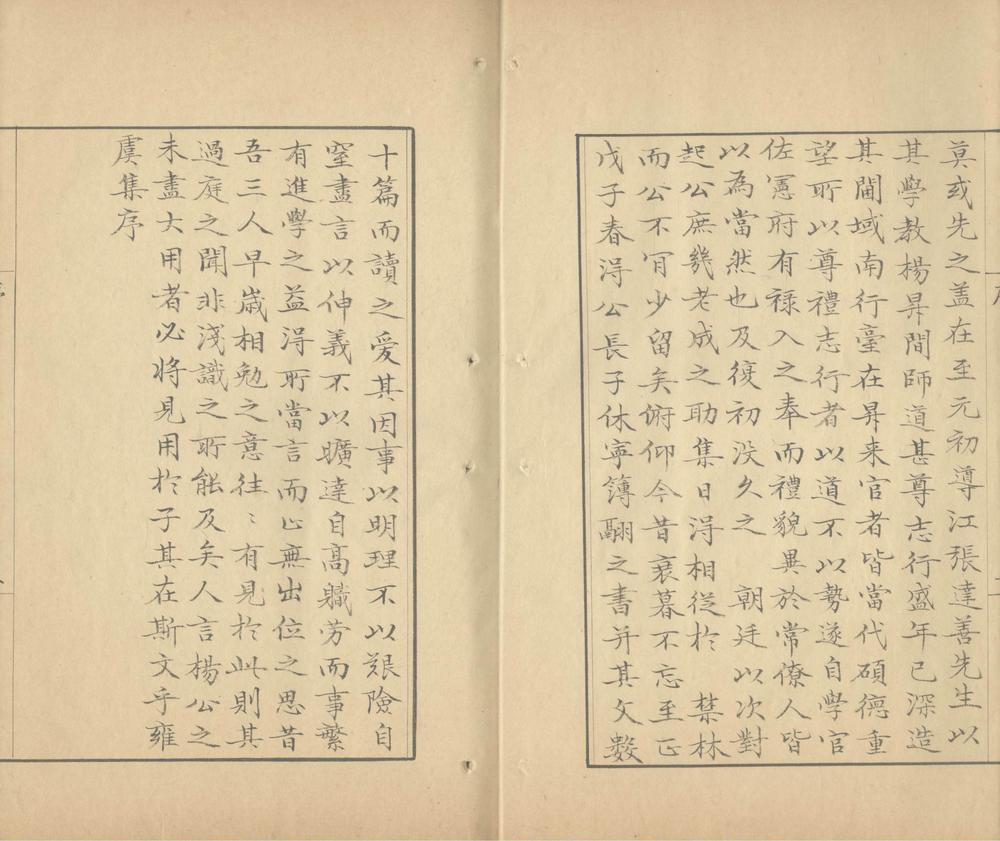 莫或先之盖在至元初導江張達善先生以
其學教楊昇間師道甚尊志行盛年已深造
其閫域南行臺在昇来官者皆當代碩德重
望所以尊禮志行者以道不以勢遂自學官
佐憲府有禄入之奉而禮貌異於常僚人皆
以為當然也及復初没久之 朝廷以次對
起公庶幾老成之助集日淂相從於 禁林
而公不肎少留矣俯仰今昔衰暮不忘至正
戊子春淂公長子休寧簿翮之書并其文數
十篇而讀之爱其因事以明理不以艱險自
窒盡言以伸義不以曠達自高軄劳而事繁
有進學之益淂所當言而亾無出位之思昔
吾三人早歳相勉之意往〻有見於此則其
過庭之聞非淺識之所能及矣人言楊公之
未盡大用者必将見用於子其在斯文乎雍
虞集序